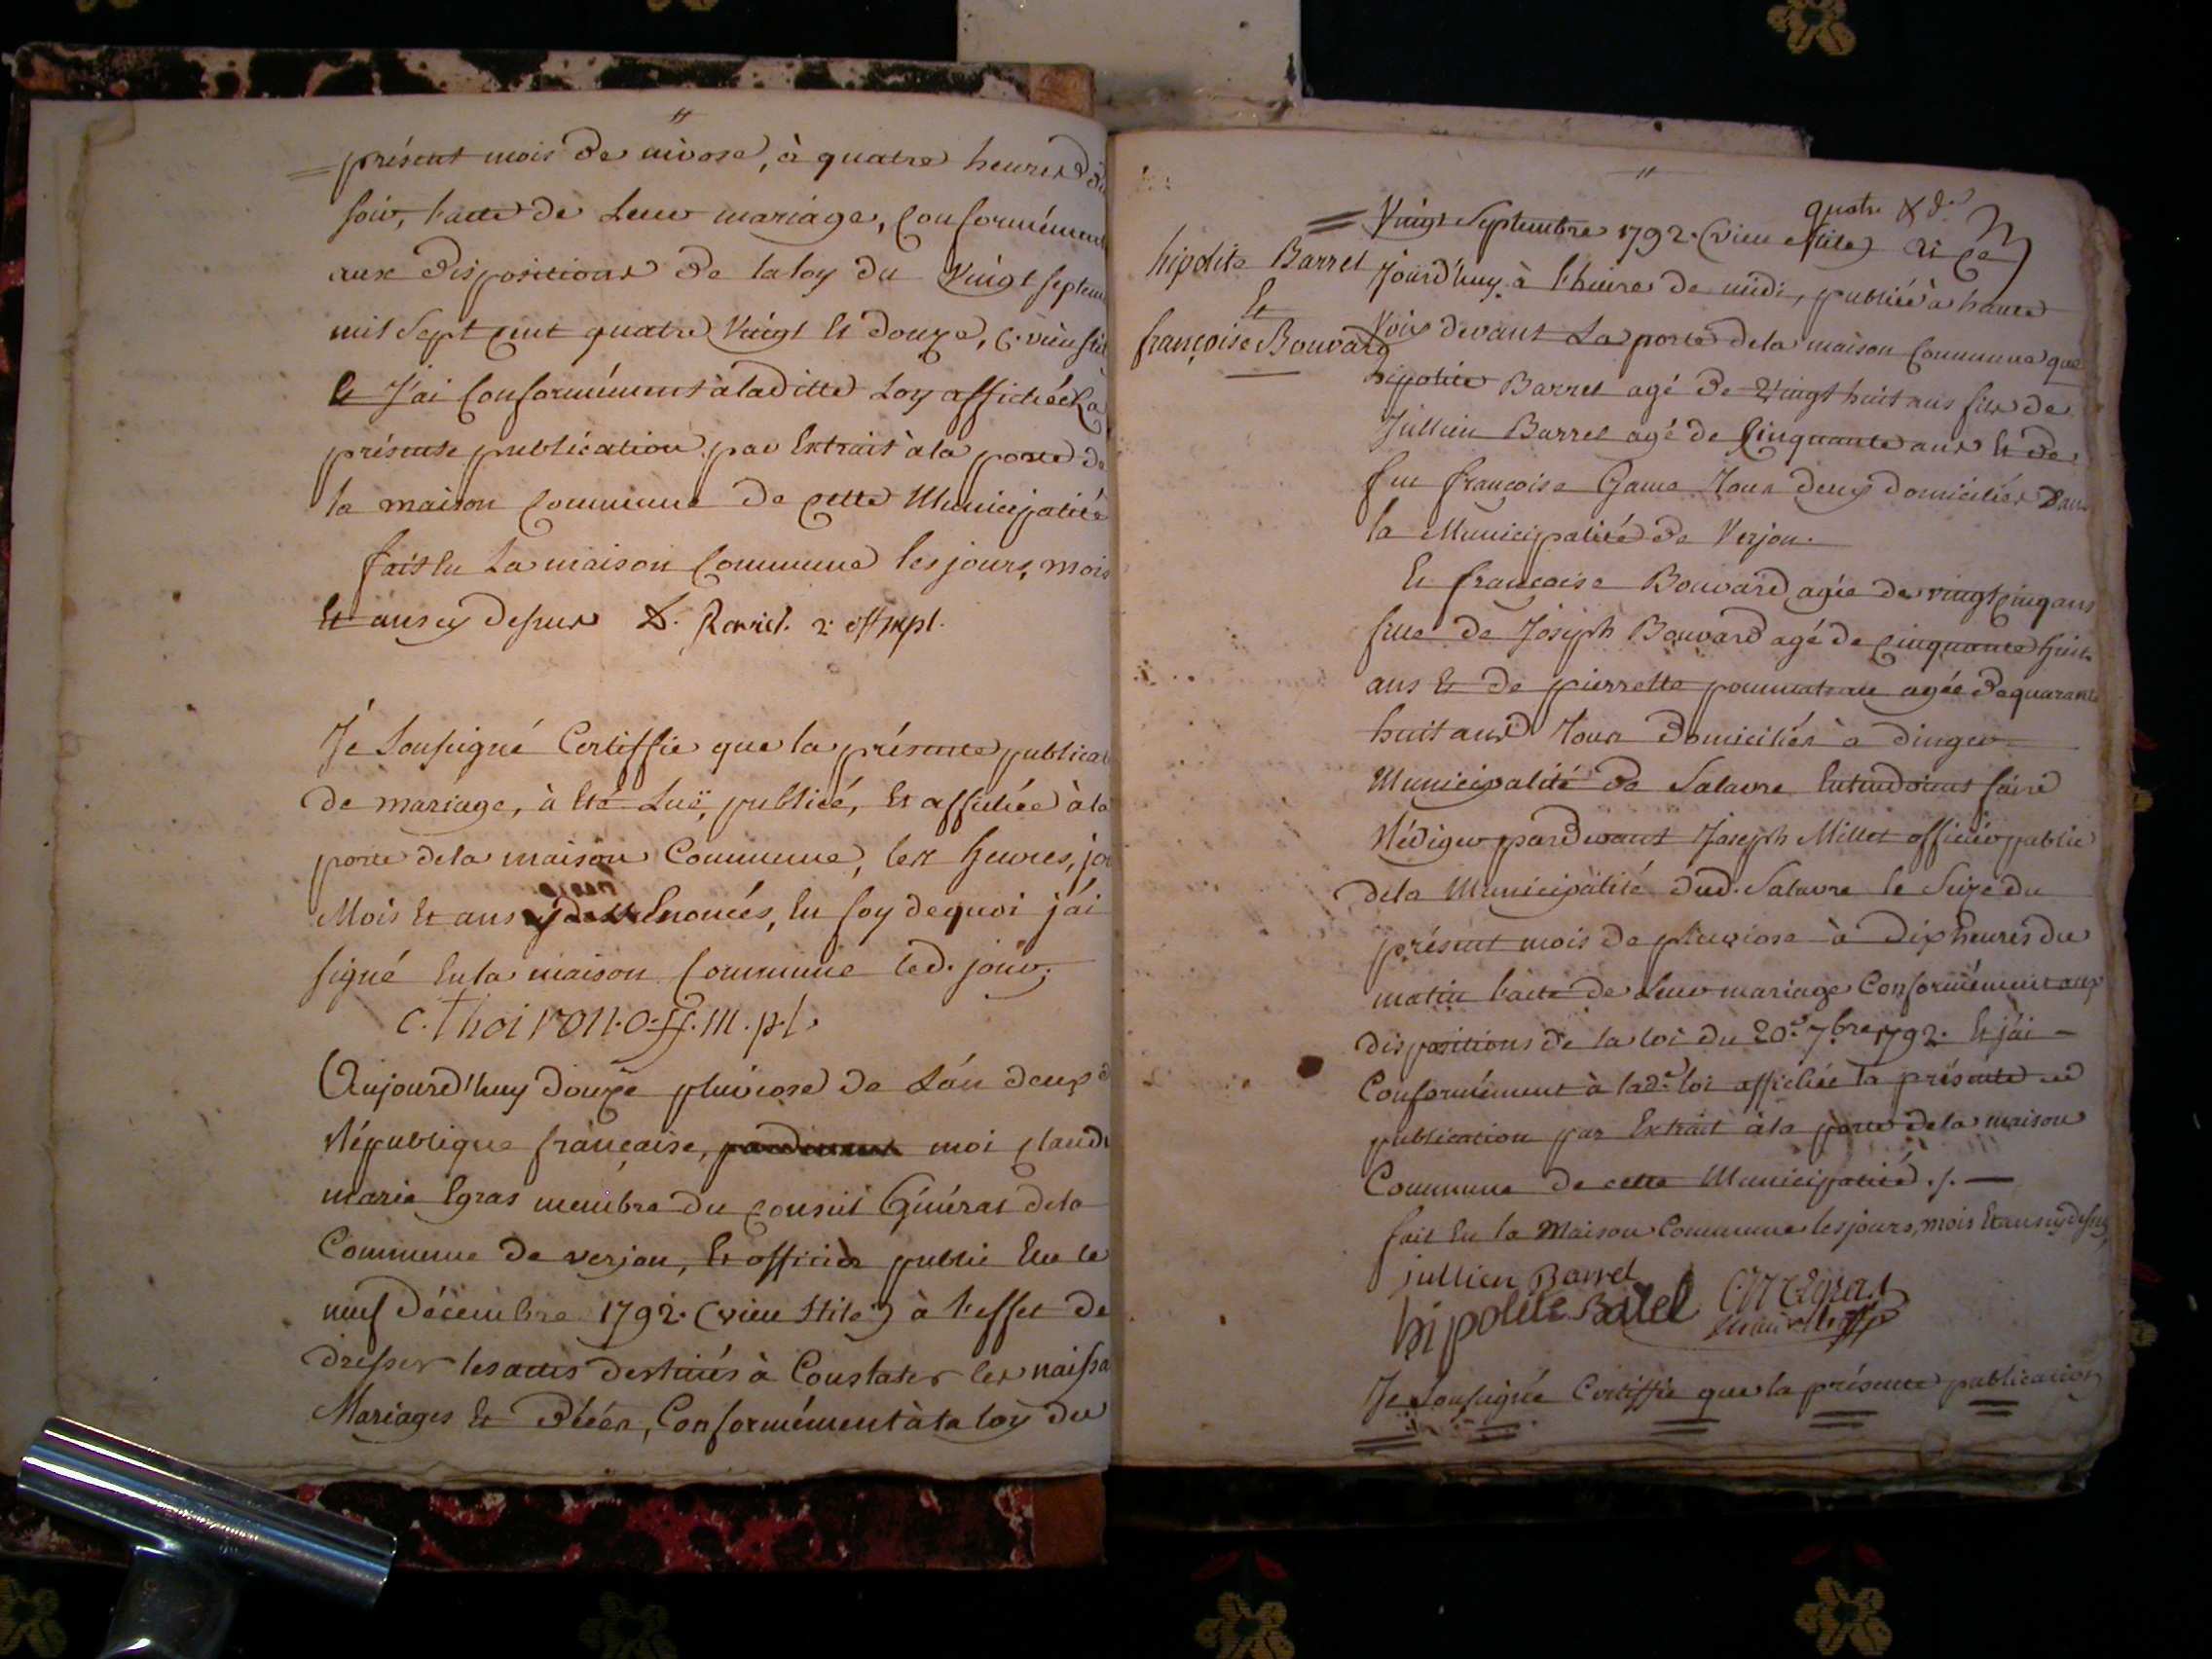 présent mois de nivose, à quatre heures du
soir, l'acte de Leur mariage, Conformément
aux dispositions de la loy du Vingt septem
mil sept cent quatre Vingt Et douze, (vieu stil
Et J'ai Conformément à laditte Loy affichée La
présente publication par Extrait à la porte de
la maison Commune de cette Municipalité
fait En La maison Commune les jours, mois
Et ans cy dessus
Je Soussigné Certiffie que la présente publicat
de mariage, à Eté Luë, publiée, Et affichée à la
porte de la maison Commune, les heures, jo
Mois Et ans Enoncés, En foy dequoi j'ai
signé En la maison Commune led. jour.
c. thoiron. off. m. p.l.
Aujourd'huy douze pluviose de L'an deux d
République française, moi claude
marie Egras membre du conseil Général de la
Commune de verjon, Et officier public Elu le
neuf décembre 1792. (vieu stile) à l'effet de
dresser les actes destinés à Constater les naissa
Mariages Et Décés, Conformément à la loy du
quatre
Vingt Septembre 1792. (vieu stile) ai ce
hipolite Barrel
Et
françoise Bouvard
Jourd'huy à l'heure de midi, publiée à haute
Voix devant La porte de la maison Commune que
hipolite Barrel agé de Vingt huit ans fils de
Jullien Barrel agé de Cinquante ans Et de
feu françoise Game Tous deux domiciliés dans
la Municipalité de Verjon.
Et françoise Bouvard agée de vingt cinq ans
fille de Joseph Bouvard agé de cinquante huit
ans Et de pierrette agée de quarante
huit ans Tous domiciliés à dingier
Municipalité de Salavre Entendoient faire
Rédiger pardevant Joseph Millet officier public
de la Municipalité dud. Salavre le Seize du
présent mois de pluviose à dix heures du
matin l'acte de Leur mariage Conformément aux
dispositions de la loi du 20.e 7.bre 1792. Et j'ai
Conformément à lad.e loi affichée la présente
publication par Extrait à la porte de la maison
Commune de cette Municipalité ./.
fait En la Maison Commune les jours, mois Et ans cy dessus,
jullien Barrel
hipolite Barel C M Egras
Je Soussignée Certiffie que la présente publication